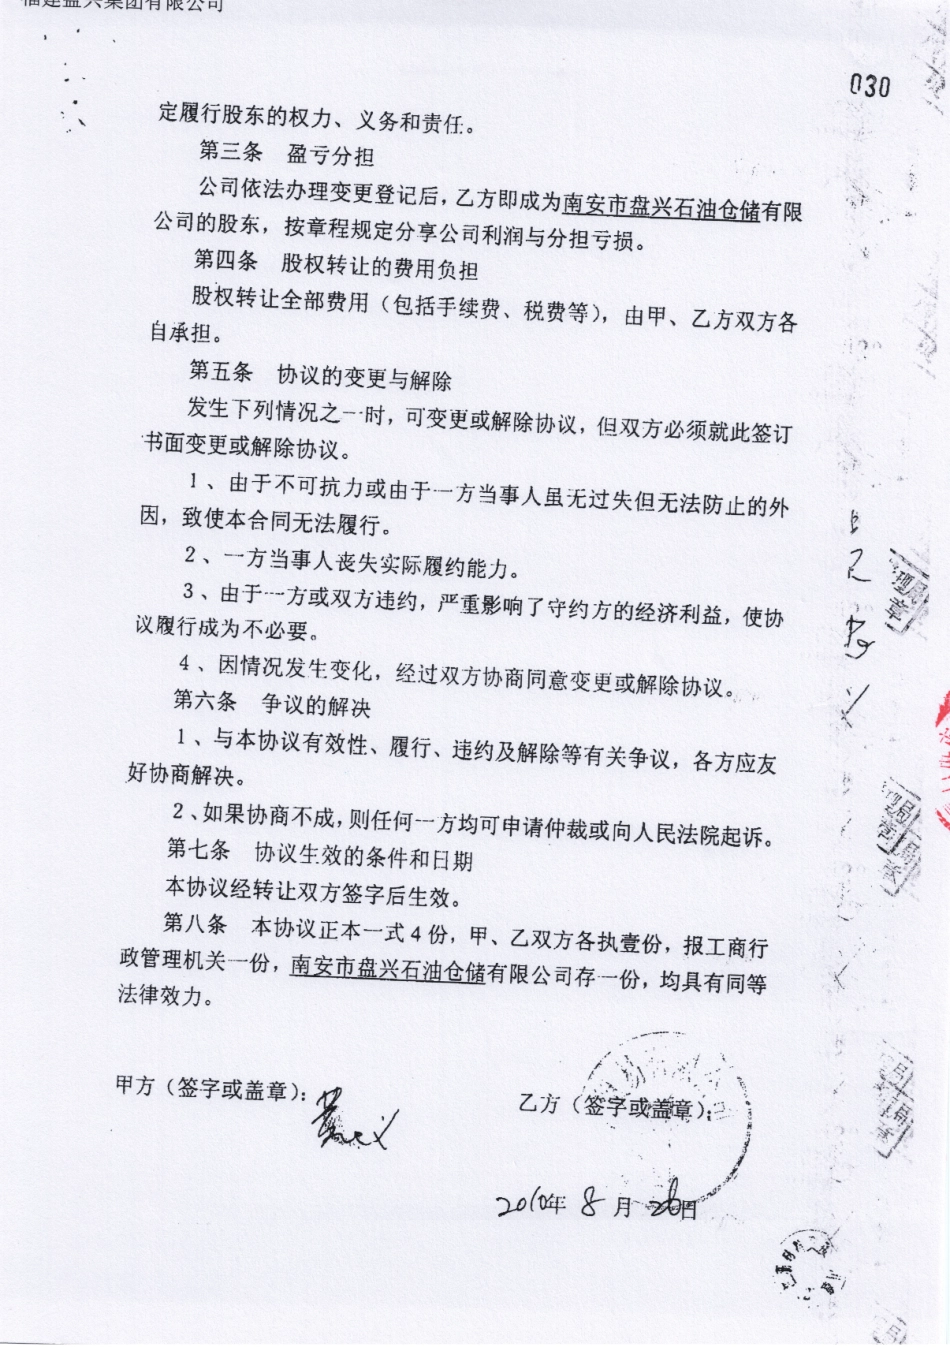 福建盘兴集团有限公司
030
定履行股东的权力、义务和责任。
第三条 盈亏分担
公司依法办理变更登记后，乙方即成为南安市盘兴石油仓储有限
公司的股东，按章程规定分享公司利润与分担亏损。
第四条 股权转让的费用负担
股权转让全部费用（包括手续费、税费等），由甲、乙方双方各
自承担。
第五条 协议的变更与解除
发生下列情况之一时，可变更或解除协议，但双方必须就此签订
书面变更或解除协议。
1、由于不可抗力或由于一方当事人虽无过失但无法防止的外
因，致使本合同无法履行。
2、一方当事人丧失实际履约能力。
3、由于一方或双方违约，严重影响了守约方的经济利益，使协
议履行成为不必要。
4、因情况发生变化，经过双方协商同意变更或解除协议。
第六条 争议的解决
1、与本协议有效性、履行、违约及解除等有关争议，各方应友
好协商解决。
2、如果协商不成，则任何一方均可申请仲裁或向人民法院起诉。
第七条 协议生效的条件和日期
本协议经转让双方签字后生效。
第八条 本协议正本一式4份，甲、乙双方各执壹份，报工商行
政管理机关一份，南安市盘兴石油仓储有限公司存一份，均具有同等
法律效力。
甲方（签字或盖章）：
乙方（签字或盖章）：
2010年 8 月 26日